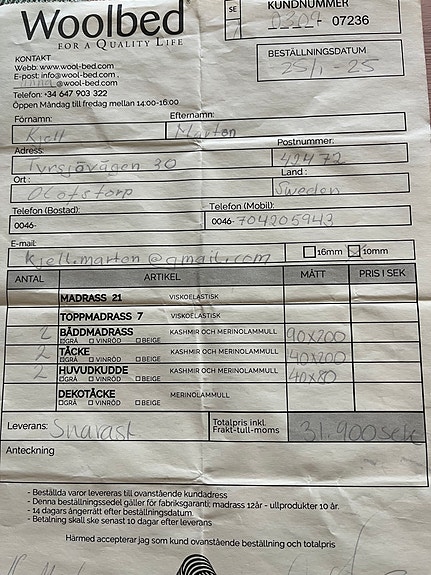 Woolbed
FOR A QUALITY LIFE
SE
KUNDNUMMER
07236
BESTÄLLNINGSDATUM
25/1-25
KONTAKT
Webb: www.wool-bed.com
E-post: info@wool-bed.com ,
@wool-bed.com
Telefon: +34 647 903 322
Öppen Måndag till fredag mellan 14:00-16:00
Förnamn: Kjell
Efternamn: Marton
Adress: Tvrsjövägen 30
Postnummer: 42472
Ort: Olofstorp
Land: Sweden
Telefon (Bostad): 0046-
Telefon (Mobil): 0046- 704205943
E-mail: kjell.marton@gmail.com
16mm 10mm
ANTAL ARTIKEL MÅTT PRIS I SEK
MADRASS 21 VISKOELASTISK
TOPPMADRASS 7 VISKOELASTISK
2 BÄDDMADRASS KASHMIR OCH MERINOLAMMULL 90x200
GRÅ VINRÖD BEIGE
2 TÄCKE KASHMIR OCH MERINOLAMMULL
GRÅ VINRÖD BEIGE
2 HUVUDKUDDE KASHMIR OCH MERINOLAMMULL 40x80
GRÅ VINRÖD BEIGE
DEKOTÄCKE MERINOLAMMULL
GRÅ VINRÖD BEIGE
Leverans: Snarast
Totalpris inkl. Frakt-tull-moms 31.900 sek
Anteckning
- Beställda varor levereras till ovanstående kundadress
- Denna beställningssedel gäller för fabriksgaranti: madrass 12år - ullprodukter 10 år.
- 14 dagars ångerrätt efter beställningsdatum.
- Betalning skall ske senast 10 dagar efter leverans
Härmed accepterar jag som kund ovanstående beställning och totalpris